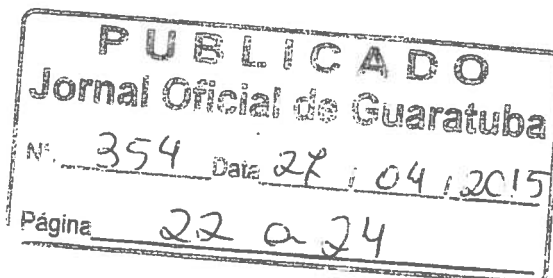 PUBLICADO
Jornal Oficial de Guaratuba
Nº. 354 Data 27 / 04 / 2015
Página 22 a 24